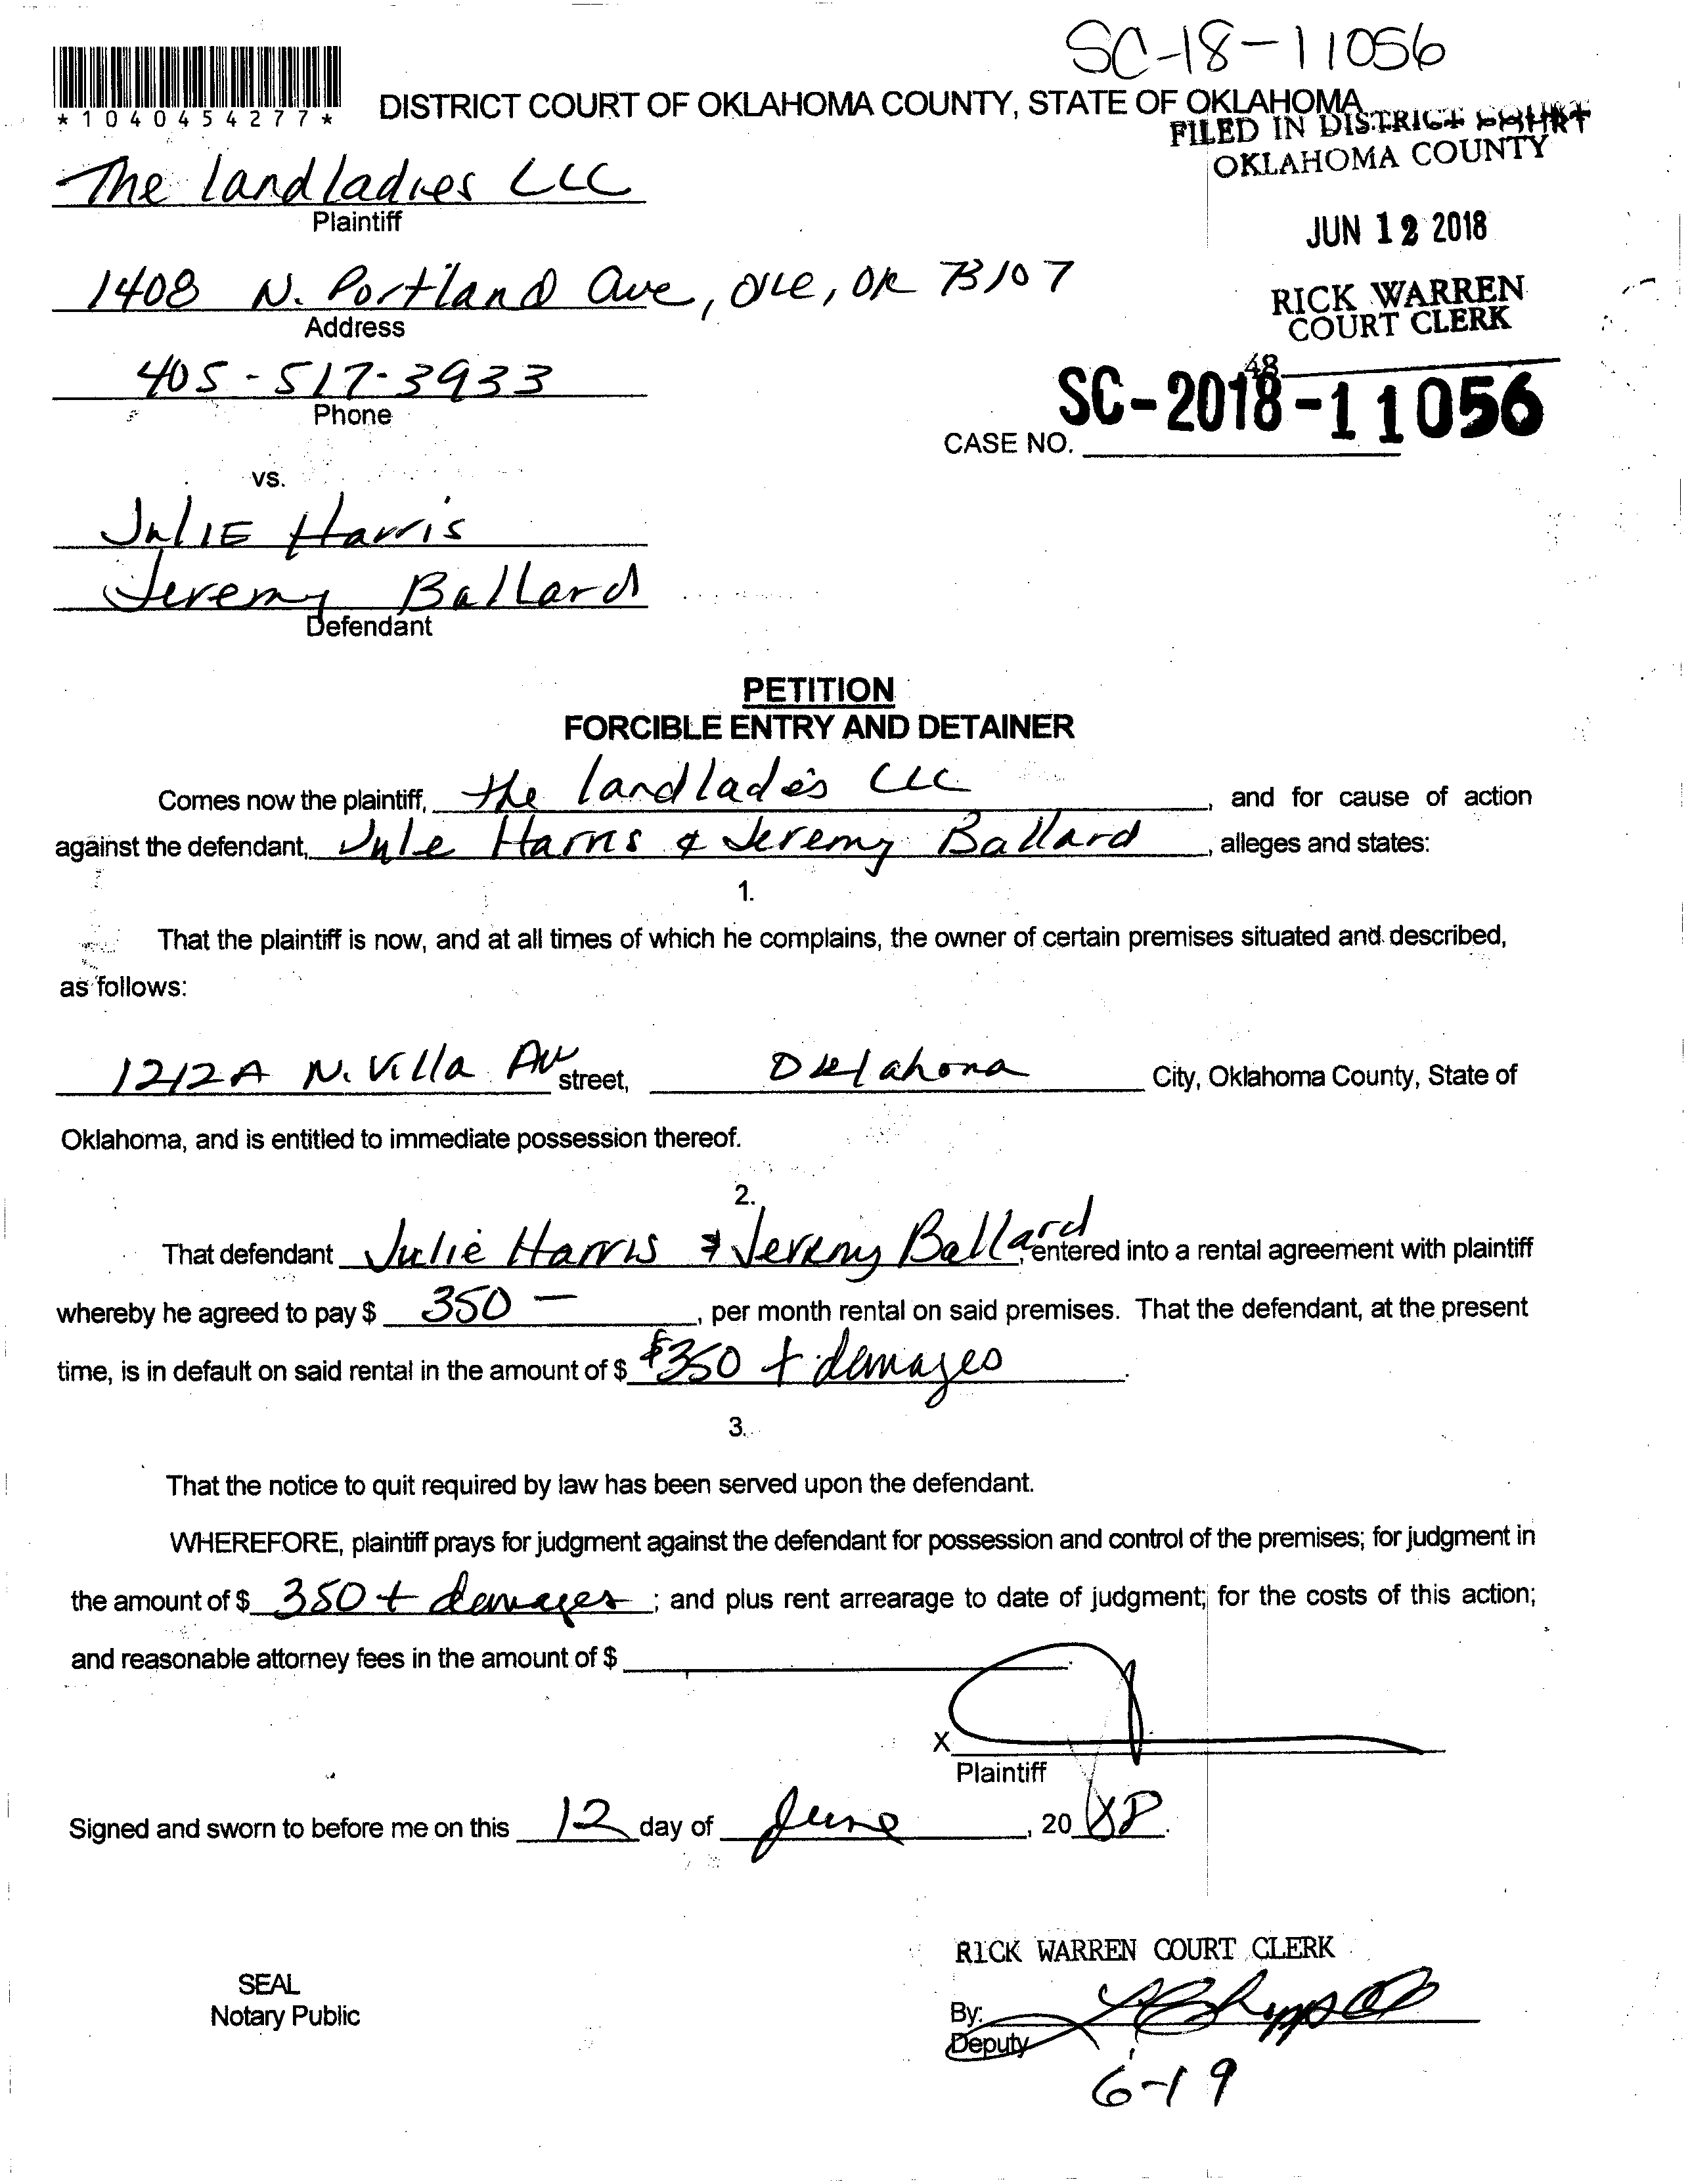 SC-18-11056
*1040454277*
DISTRICT COURT OF OKLAHOMA COUNTY, STATE OF OKLAHOMA
FILED IN DISTRICT COURT
OKLAHOMA COUNTY
The landladies LLC
Plaintiff
JUN 12 2018
1408 N. Portland Ave, OKC, OK 73107
Address
RICK WARREN
COURT CLERK
405-517-3933
Phone
48
SC-2018-11056
CASE NO.
vs.
JulIE Harris
Jeremy Ballard
Defendant
PETITION
FORCIBLE ENTRY AND DETAINER
Comes now the plaintiff, the landladies LLC, and for cause of action
against the defendant, Julie Harris & Jeremy Ballard, alleges and states:
1.
That the plaintiff is now, and at all times of which he complains, the owner of certain premises situated and described,
as follows:
1212A N. Villa Ave street, Oklahoma City, Oklahoma County, State of
Oklahoma, and is entitled to immediate possession thereof.
2.
That defendant Julie Harris & Jeremy Ballard, entered into a rental agreement with plaintiff
whereby he agreed to pay $ 350 —, per month rental on said premises. That the defendant, at the present
time, is in default on said rental in the amount of $ $350 + damages.
3.
That the notice to quit required by law has been served upon the defendant.
WHEREFORE, plaintiff prays for judgment against the defendant for possession and control of the premises; for judgment in
the amount of $ 350 + damages; and plus rent arrearage to date of judgment; for the costs of this action;
and reasonable attorney fees in the amount of $
X
Plaintiff
Signed and sworn to before me on this 12 day of June, 20 18.
RICK WARREN COURT CLERK
SEAL
Notary Public
By:
Deputy
6-19